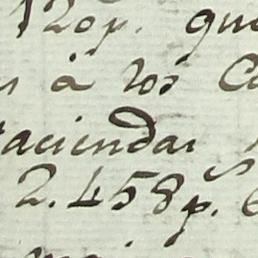 120p. que
s à los Ca
haciendas
2.458p.s 6